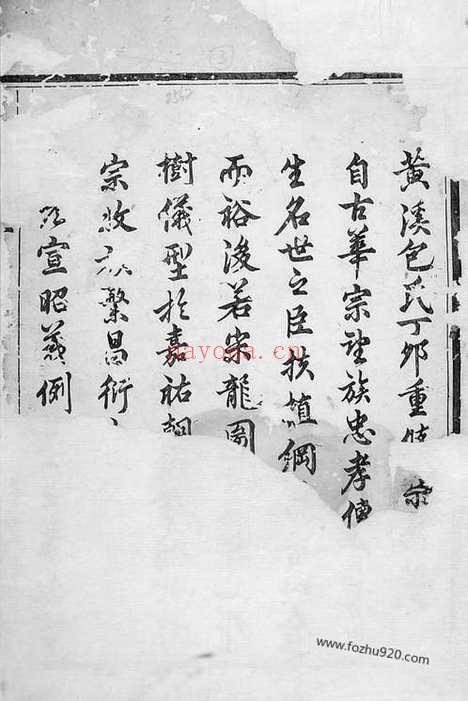 黄溪包氏丁卯重修宗
自古華宗望族忠孝傳
生名世之臣扶植綱
而裕後若宋龍圖
樹儀型於嘉祐
宗牧 繁昌衍
宣昭義例
nayona.cn
www.fozhu920.com
3